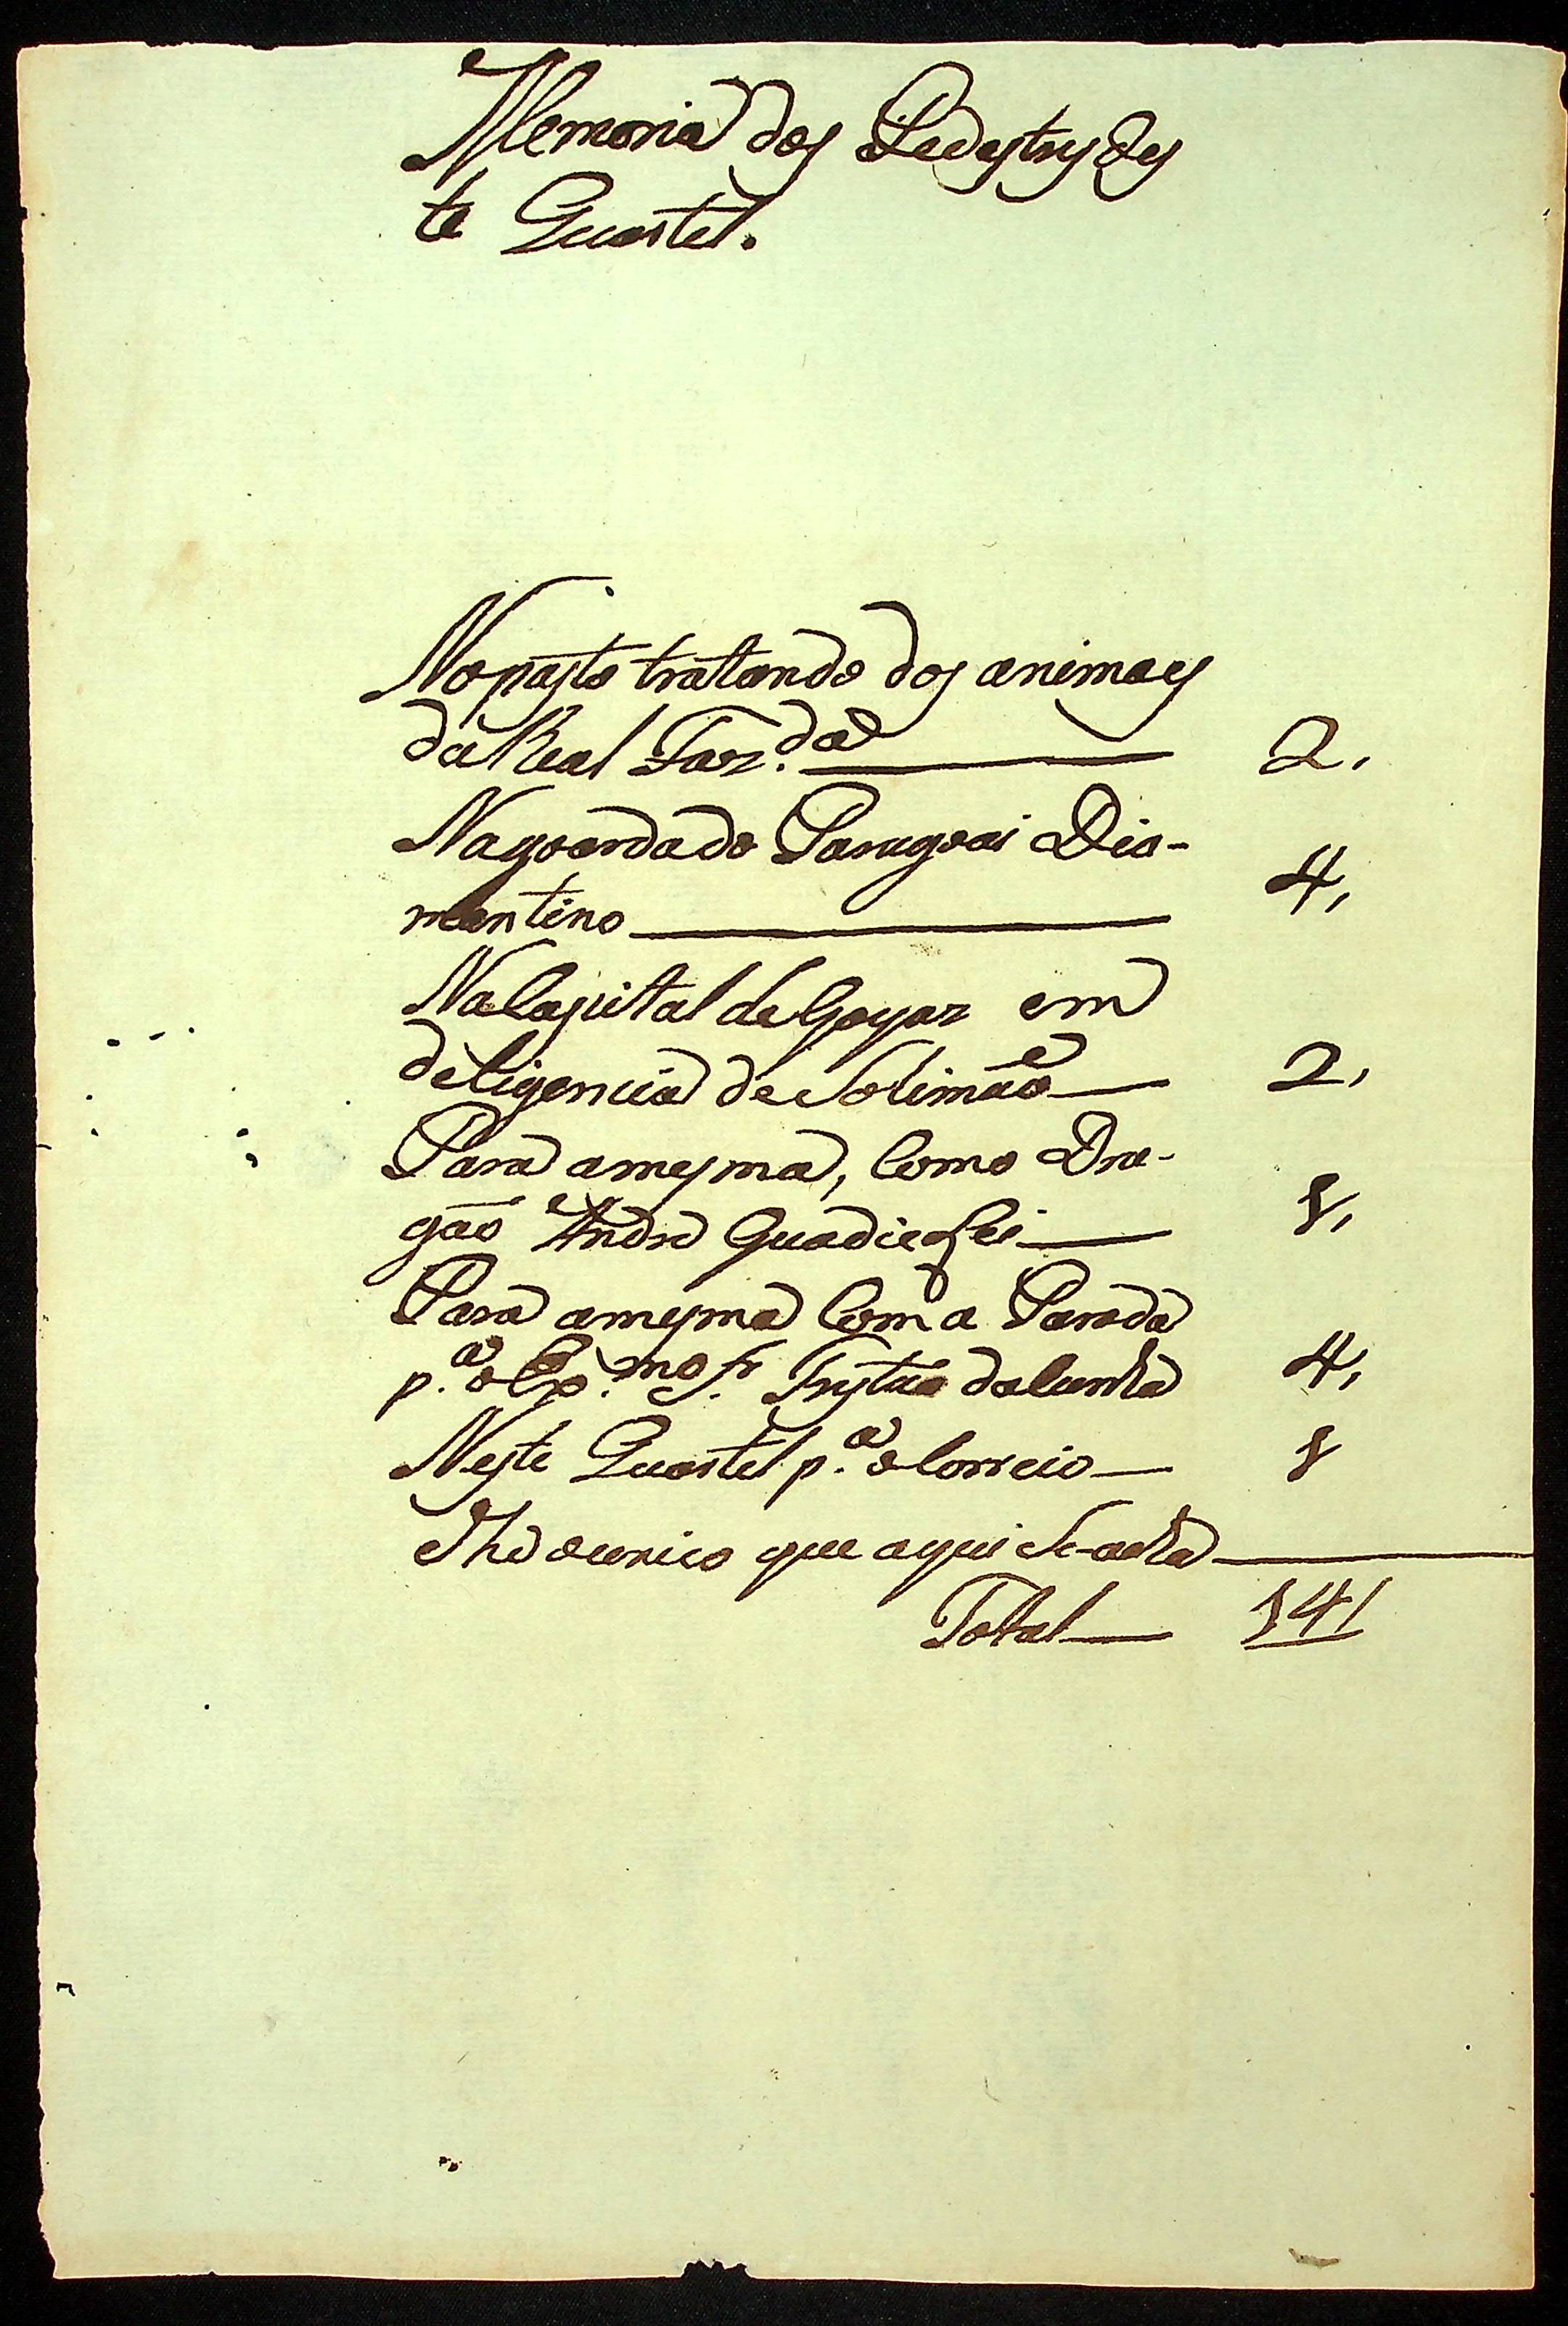 Memoria dos Pedestres des
te Quartel.
No pasto tratando dos animaes
da Real Faz.da 2,
Na goarda do Paragoai Dia-
mentino 4,
Na Capital de Goyaz em
deligencia de Solimão 2,
Para a mesma, Com o Dra-
gão Andre Guadie Lei 1,
Para a mesma Com a Parada
p.a o Ex.mo Sr. Trystão da Cunha 4,
Neste Quartel p.a o Correio 1
He o unico que aqui Se-acha
Total 14/